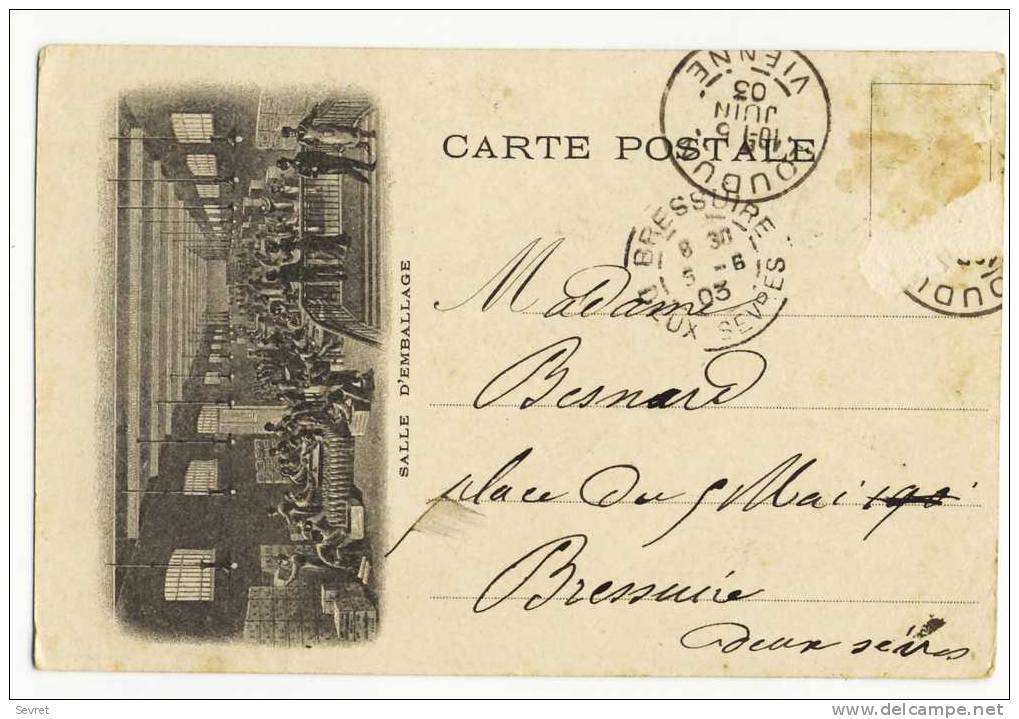 CARTE POSTALE
LOUDUN
VIENNE
5
JUIN
03
BRESSUIRE
8 30
5 -6
03
DEUX SEVRES
LOUDU
SALLE D'EMBALLAGE
Madame
Besnard
place du 5 Mai
Bressuire
deux sévres
Sevret
www.delcampe.net